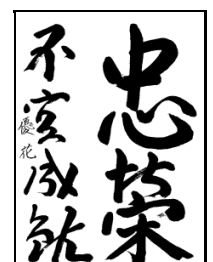 忠榮
不定成就
優花